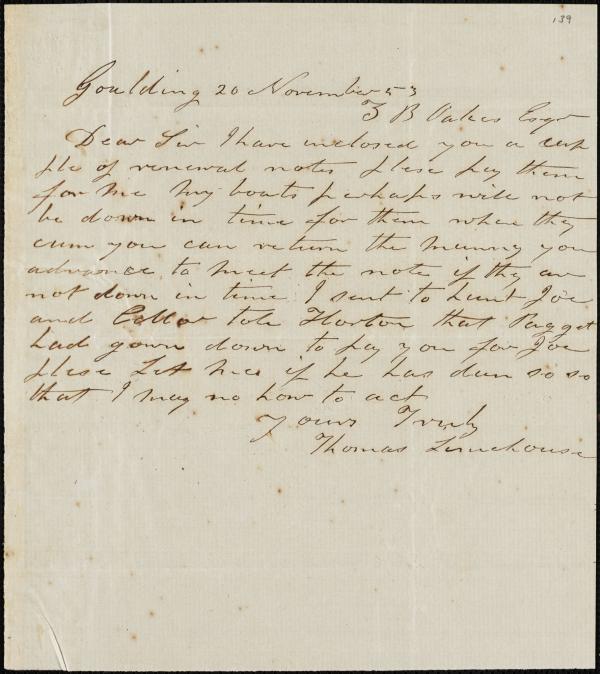 139
Goulding 20 November 53
Z B Oakes Esqr
Dear Sir I have inclosed you a cup
ple of renewal notes plese pay them
for me my boats perhaps will not
be down in time for them when they
cum you can return the munny you
advance to meet the note if they are
not down in time I sent to hunt Joe
and Collor tole Horton that Pagget
had gown down to pay you for Joe
plese Let me if he has dun so so
that I may no how to act
Yours Truly
Thomas Limehouse